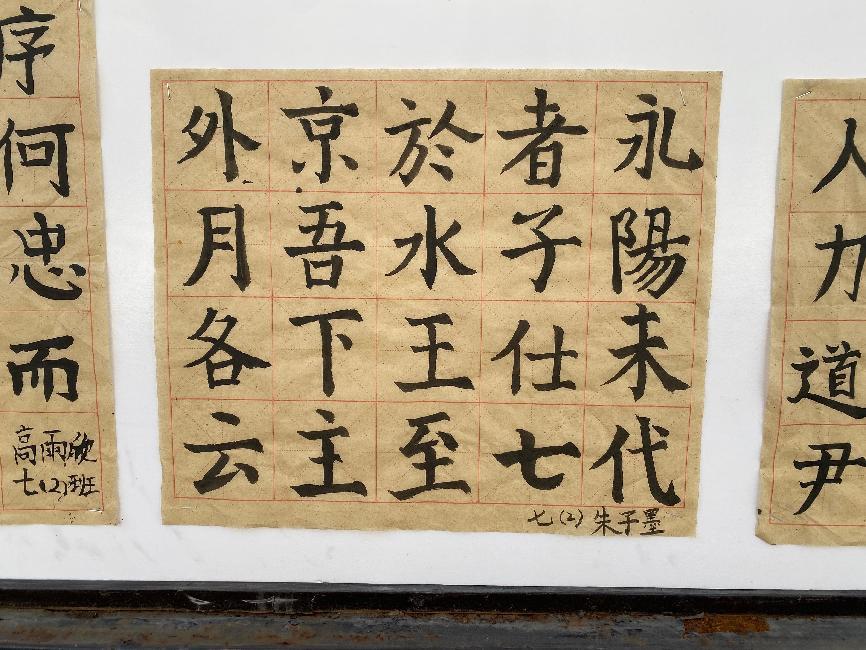 人力道尹
永陽未代
者子仕七
於水王至
京吾下主
外月各云
七(2) 朱子墨
序何忠而
高雨欣
七(2)班